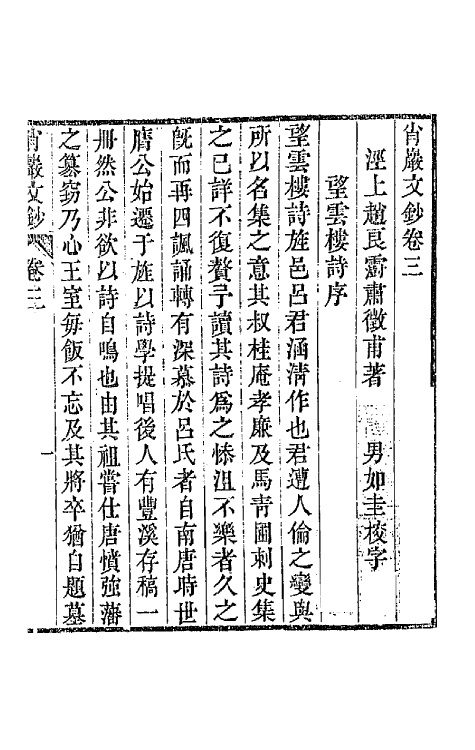 肖巖文鈔卷三
涇上趙良霨肅徵甫著 男如圭校字
望雲樓詩序
望雲樓詩旌邑呂君涵淸作也君遭人倫之變與
所以名集之意其叔桂庵孝廉及馬靑圃刺史集
之已詳不復贅予讀其詩爲之悽沮不樂者久之
旣而再四諷誦轉有深慕於呂氏者自南唐時世
膺公始遷于旌以詩學提唱後人有豐溪存稿一
冊然公非欲以詩自鳴也由其祖嘗仕唐憤強藩
之篡竊乃心王室每飯不忘及其將卒猶自題墓
肖巖文鈔 卷三 一